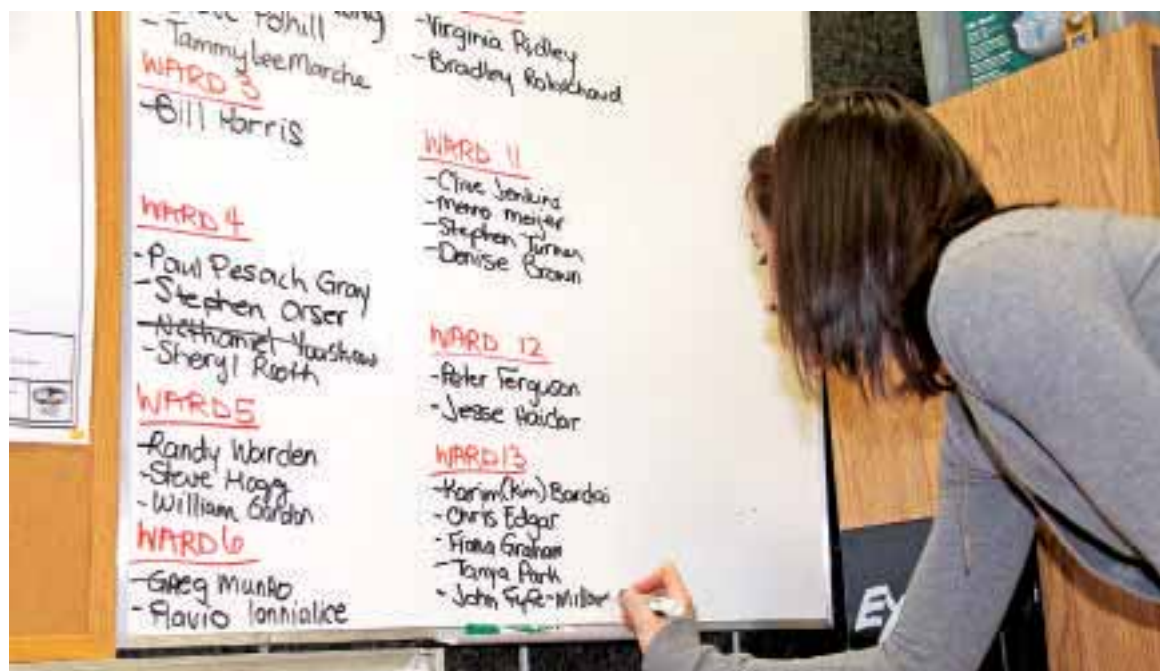 Polhill
- TammyLee Marche
WARD 3
- Bill Harris
WARD 4
- Paul Pesach Gray
- Stephen Orser
- Sheryl Rooth
WARD 5
- Randy Warden
- Steve Hogg
- William Gordon
WARD 6
- Greg Munro
- Flavio Iannialice
- Virginia Ridley
- Bradley
WARD 11
- Clive Jenkins
- Menno Meijer
- Stephen Turner
- Denise Brown
WARD 12
- Peter Ferguson
- Jesse Haidar
WARD 13
- Karim (Kim) Bardai
- Chris Edgar
- Fiona Graham
- Tanya Park
- John Fyfe-Millar